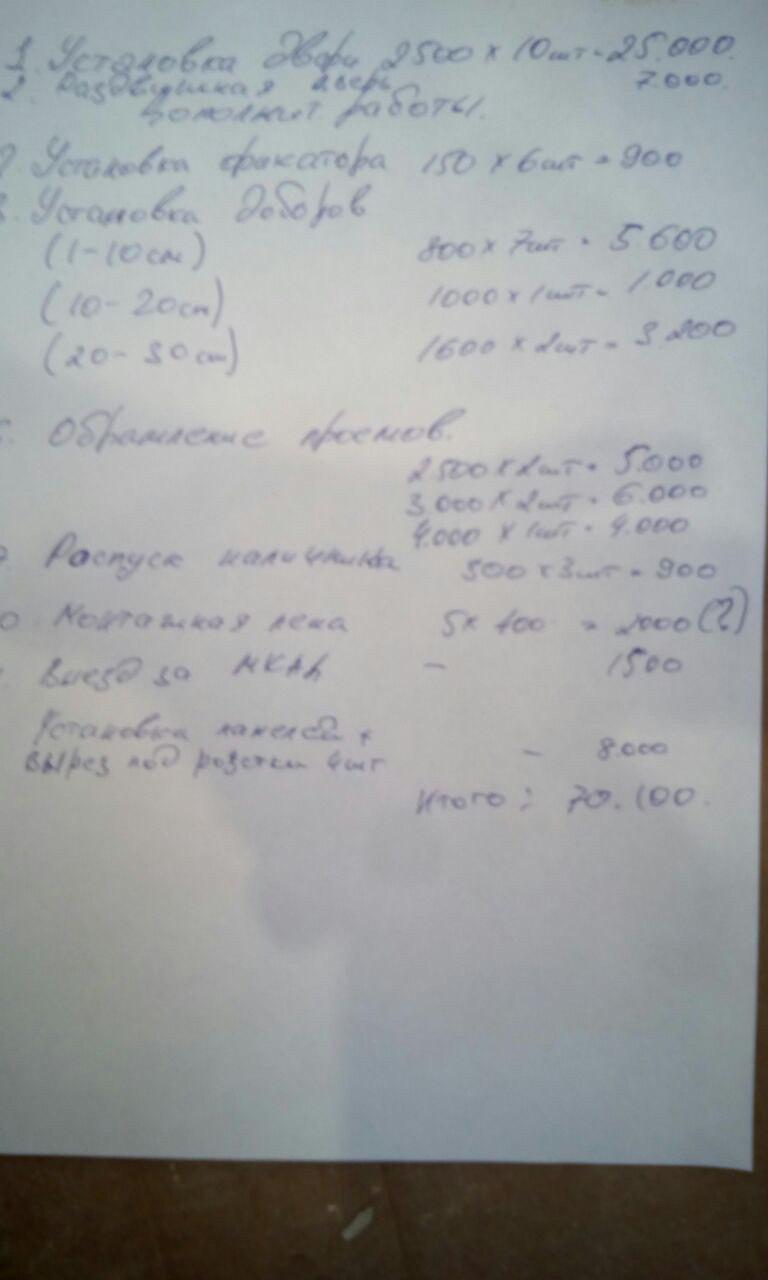 1 Установка двери 2500 x 10шт - 25.000.
2. Раздвижная дверь 7.000.
Дополнит работы.
Установка фиксатора 150 x 6шт = 900
Установка доборов
(1-10см) 800 x 7шт = 5.600
(10-20см) 1000 x 1шт = 1.000
(20-30см) 1600 x 2шт = 3.200
Обрамление проемов.
2500 x 2шт = 5.000
3.000 x 2шт = 6.000
4.000 x 1шт = 4.000
Распуск наличника 300 x 3шт = 900
Монтажная пена 5 x 400 = 2000 (?)
Выезд за МКАД - 1500
Установка панелей +
вырез под розетки 4шт - 8.000
Итого: 70.100.